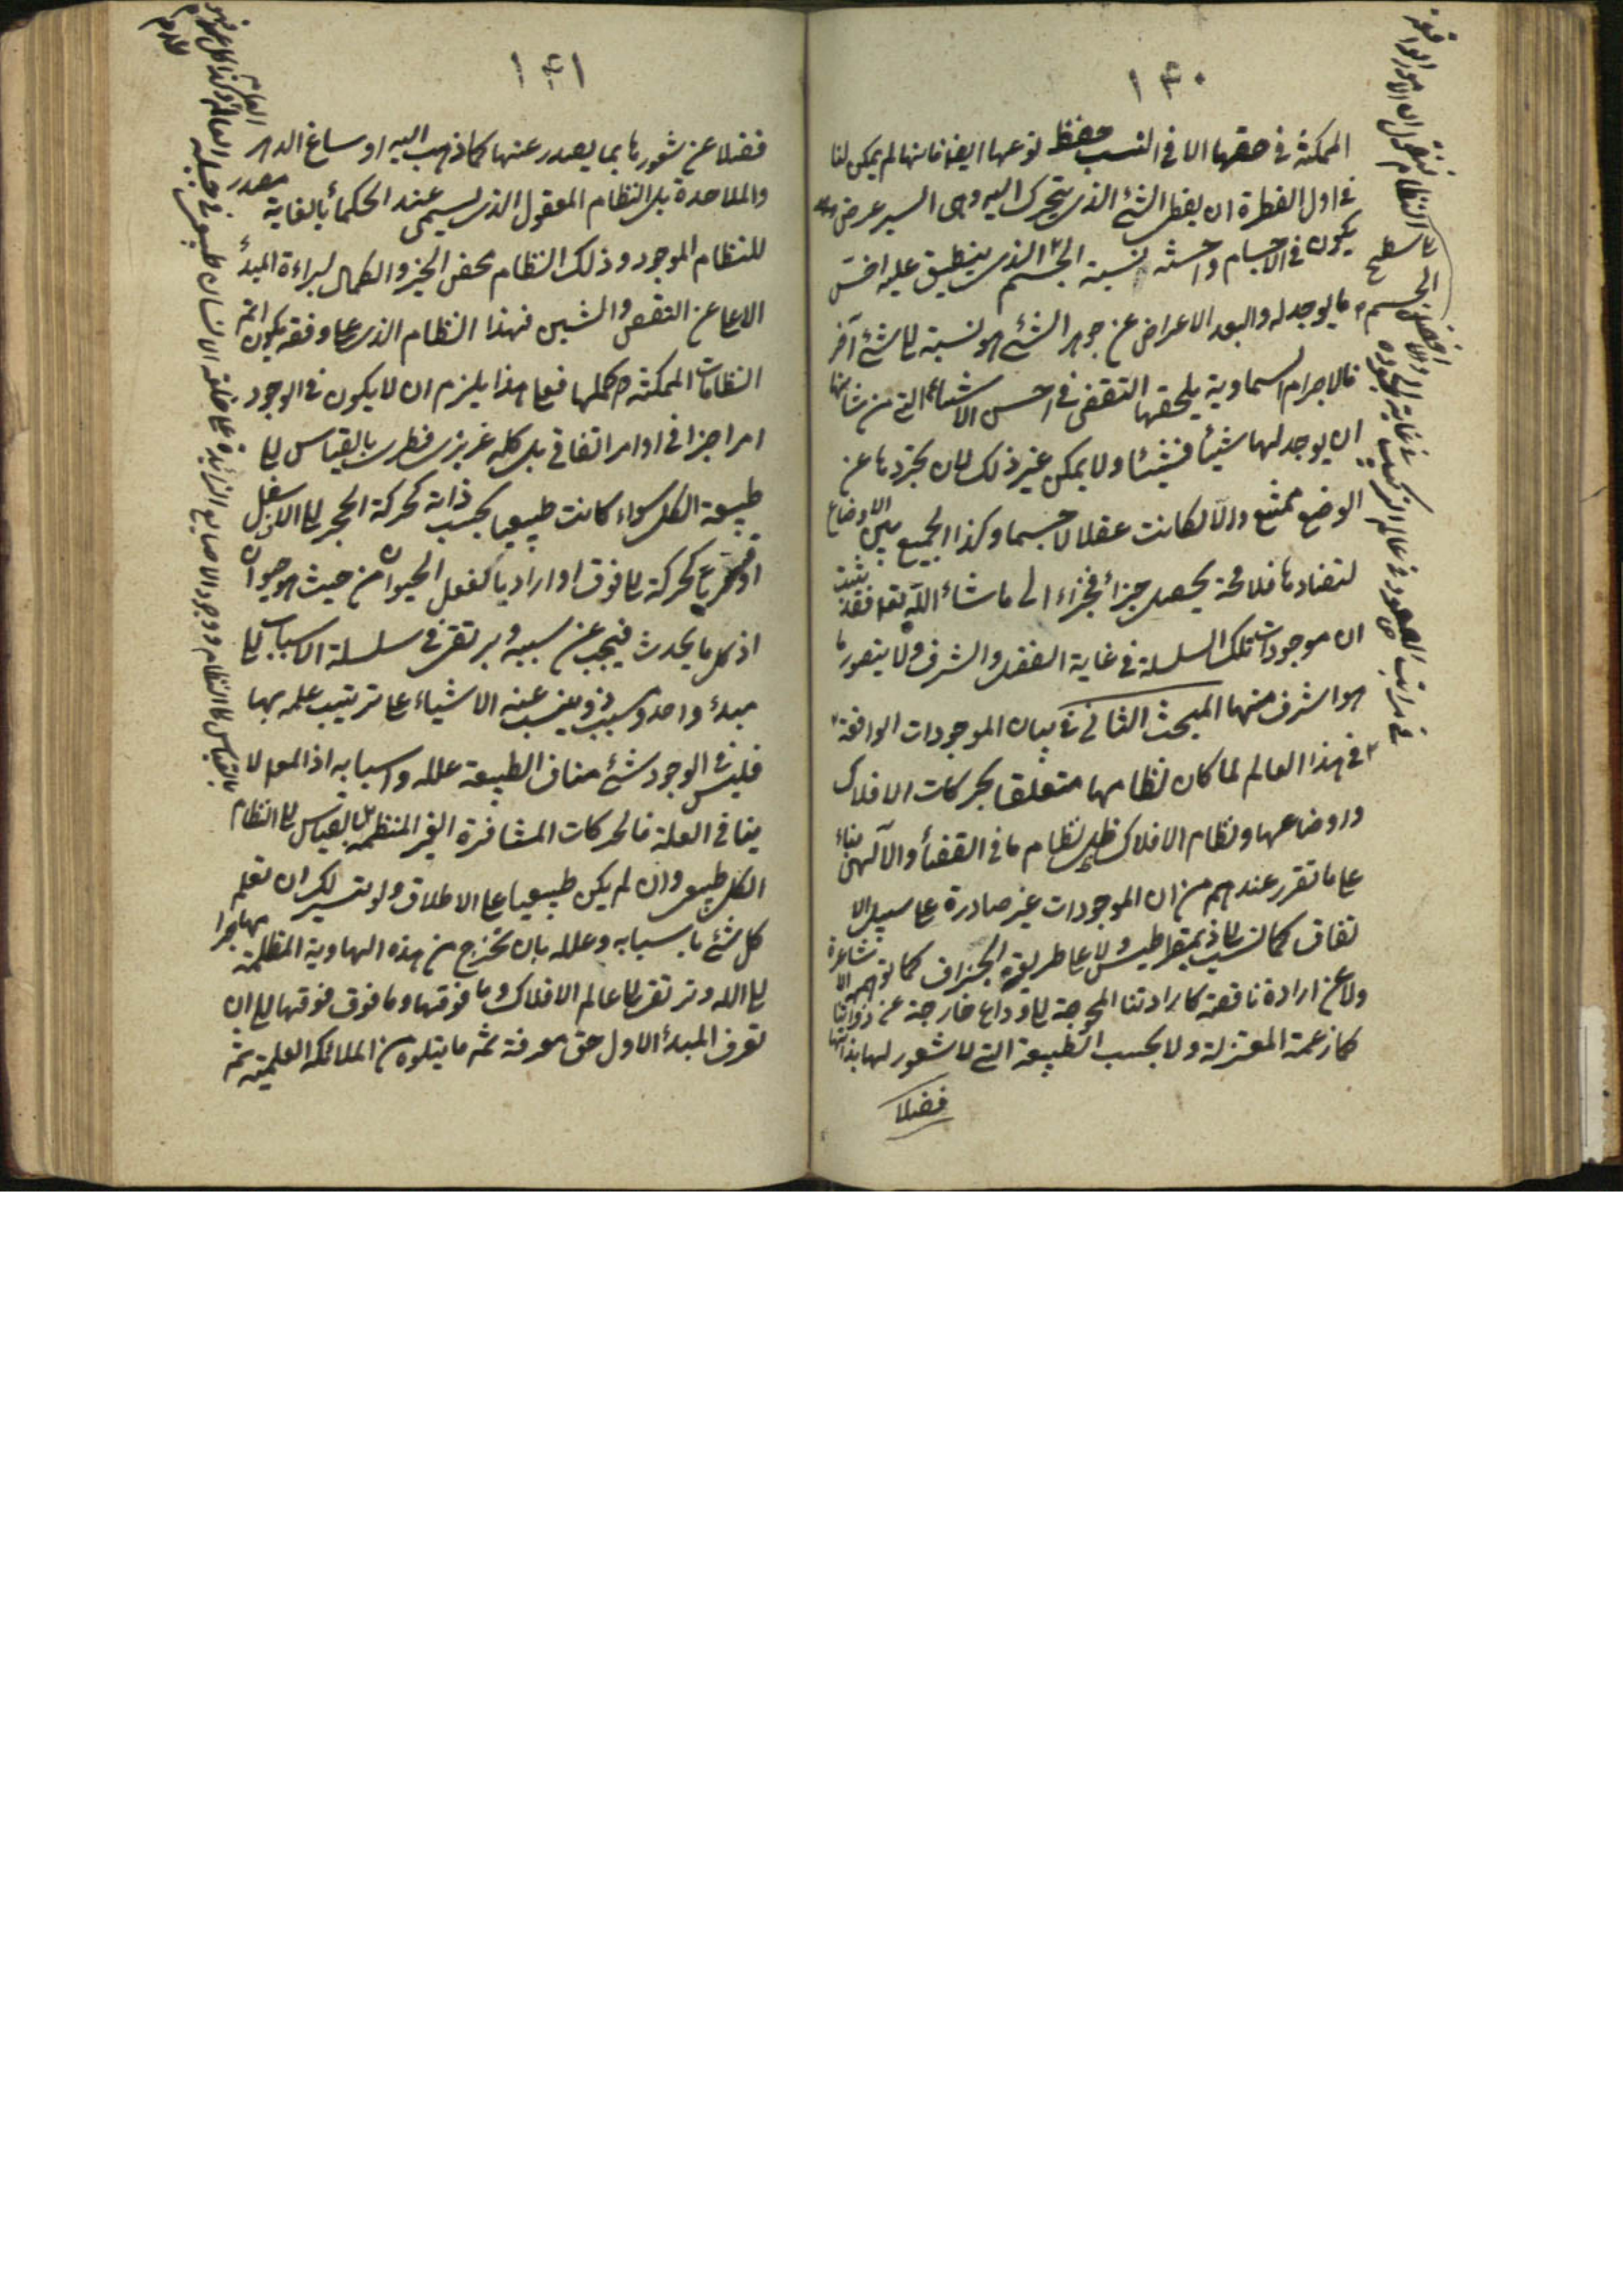 ١٤٠
الممكنة في حقها الا في النسب حفظ نوعها ايضا فانها لم يمكن لنا
في اول الفطرة ان يعطى الشئ الذي يتحرك اليه وهي السير عرض
يكون في الاجسام واخسه نسبة الجسم الذي ينطبق عليه اخس
ما يوجد له وابعد الاعراض عن جوهر الشئ هو نسبة الى شئ آخر
فالاجرام السماوية يلحقها النقص في اخس الاشياء التي من شانها
ان يوجد لها شيئا فشيئا ولا يمكن غير ذلك لان تجردها عن
الوضع ممتنع والا لكانت عقلا لا جسما وكذا الجميع بين الاوضاع
لتضادها فلا محة يحصل جزأ فجزاء الى ما شاء الله تعا فقد ثبت
ان موجودات تلك السلسلة في غاية الفضل والشرف ولا يتصور ما
هو اشرف منها المبحث الثاني في بيان الموجودات الواقعة
في هذا العالم لما كان نظامها متعلقا بحركات الافلاك
واوضاعها ونظام الافلاك ظل نظام ما في القضأ الالهى بناء
عا ما تقرر عندهم من ان الموجودات غير صادرة عا سبيل الا
تفاق كما نسب الى ذيمقراطيس ولا عا طريقة الجزاف كما توهمه الاشاعرة
ولا عن ارادة ناقصة كارادتنا المحوجة الى دواع خارجة عن ذواتنا
كما زعمة المعتزلة ولا بحسب الطبيعة التي لا شعور لها بذاتها
فضلا
سطح الجسم
فنقول ان الامور الواقعة
في مراتب الصعود في عالم التركيب في غاية الجودة
١٤١
فضلا عن شعورها بما يصدر عنها كما ذهب اليه اوساخ الدهر
والملاحدة بل النظام المعقول الذي يسمى عند الحكمأ بالعناية مصدر
للنظام الموجود وذلك النظام محض الخير والكمال لبراءة المبدأ
الاعا عن النقص والشين فهذا النظام الذي عا وفقه يكون اتم
النظامات الممكنة واكملها فعا هذا يلزم ان لا يكون في الوجود
امر جزافي او امر اتفاقي بل كله غريزي فطري بالقياس الى
طبيعة الكل سواء كانت طبيعيا بحسب ذاته كحركة الحجر الى الاسفل
او قسريا كحركته الى فوق او اراديا كفعل الحيوان من حيث هو حيوان
اذ كل ما يحدث فيجب عن سببه ويرتقى في سلسلة الاسباب الى
مبدأ واحد وسبب فرد ينبعث عنه الاشياء عا ترتيب علمه بها
فليس في الوجود شئ مناف الطبيعة علله واسبابه اذ المعلول لا
ينافي العلة فالحركات المتنافرة الغير المنتظمة بالقياس الى النظام
الكل طبيعى وان لم يكن طبيعيا عا الاطلاق ولو تيسر لك ان تعلم
كل شئ باسبابه وعلله بان تخرج من هذه الهاوية المظلمة مهاجرا
الى الله وترتقى الى عالم الافلاك وما فوقها وما فوق فوقها الى ان
تعرف المبدأ الاول حق معرفته ثم ما يتلوه من الملائكة العلمية ثم